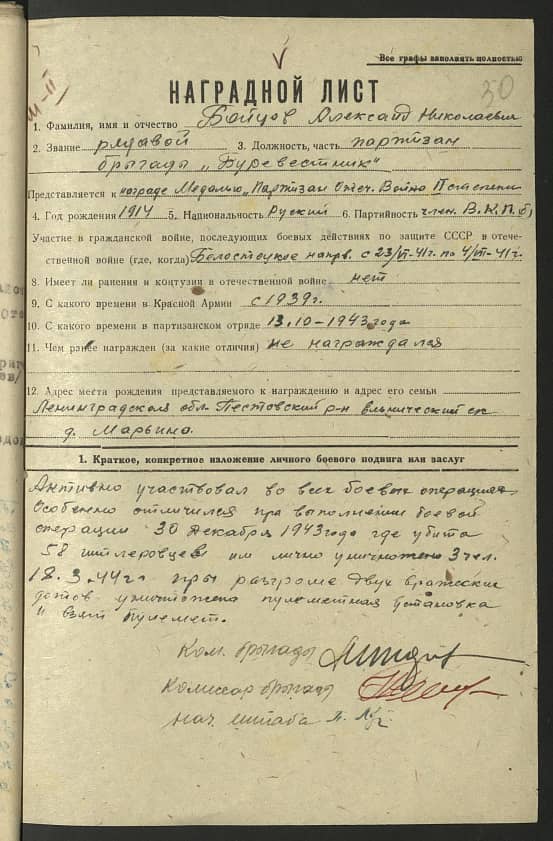 Все графы заполнять полностью
30
III-II
НАГРАДНОЙ ЛИСТ
1. Фамилия, имя и отчество Бойцов Александ Николаевич
2. Звание рядавой 3. Должность, часть партизан
брыгады „Буревестник“
Представляется к награде Медалью „Партизан Отеч. Войны II степени
4. Год рождения 1914 5. Национальность Руский 6. Партийность член В.К.П.б)
Участие в гражданской войне, последующих боевых действиях по защите СССР в отече-
ственной войне (где, когда) Белостоцкое напрв. с 23/VI-41г. по 4/VII-41г.
8. Имеет ли ранения и контузии в отечественной войне нет
9. С какого времени в Красной Армии с 1939г.
10. С какого времени в партизанском отряде 13.10-1943 года
11. Чем ранее награжден (за какие отличия) не награждался
12. Адрес места рождения представляемого к награждению и адрес его семьи
Ленинградская обл. Пестовский р-н
д. Марьино
1. Краткое, конкретное изложение личного боевого подвига или заслуг
Активно участвовал во всех боевых операциях
Особенно отличился при выполнении боевой
операции 30 декабря 1943 года где убита
58 гитлеровцев им лично уничтожено 3 чел.
18.3.44г. пры разгроме двух вражеских
дотов уничтожено пулеметная установка
и взят пулемет.
Ком. брыгады
Комиссар брыгады
нач. штаба